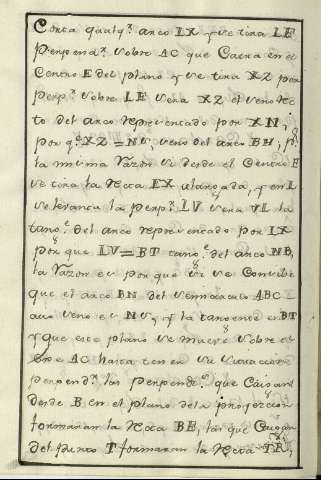 Corta qualq.r arco IX y se tira LE
perpend.r sobre AC que Caera en el
Centro E del plano y se tira XZ por
perp.r sobre LE sera XZ el seno rec
to del arco representado por XN,
por q.e XZ = NS, seno del arco BN; p.r
la misma razon si desde el Centro E
se tira la recta EX alargada, y en I
se levanta la perp.r LV sera VI la
tang.e del arco representado por IX
por que LV = BT tang.e del arco NB,
la razon es por que si se Concibe
que el arco BN del semicirculo ABC
cuio seno es NS, y la tangente en BT
y que este plano se mueve sobre el
exe AC hasta tener su situacion
perpend.r las perpend.s que Caisan
desde B, en el plano de la proyeccion
formaran la recta BE, las que Caigan
del punto T formaran la recta TR,